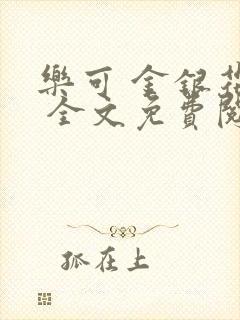 樂可 金銀花
全文免費閱
孤在上